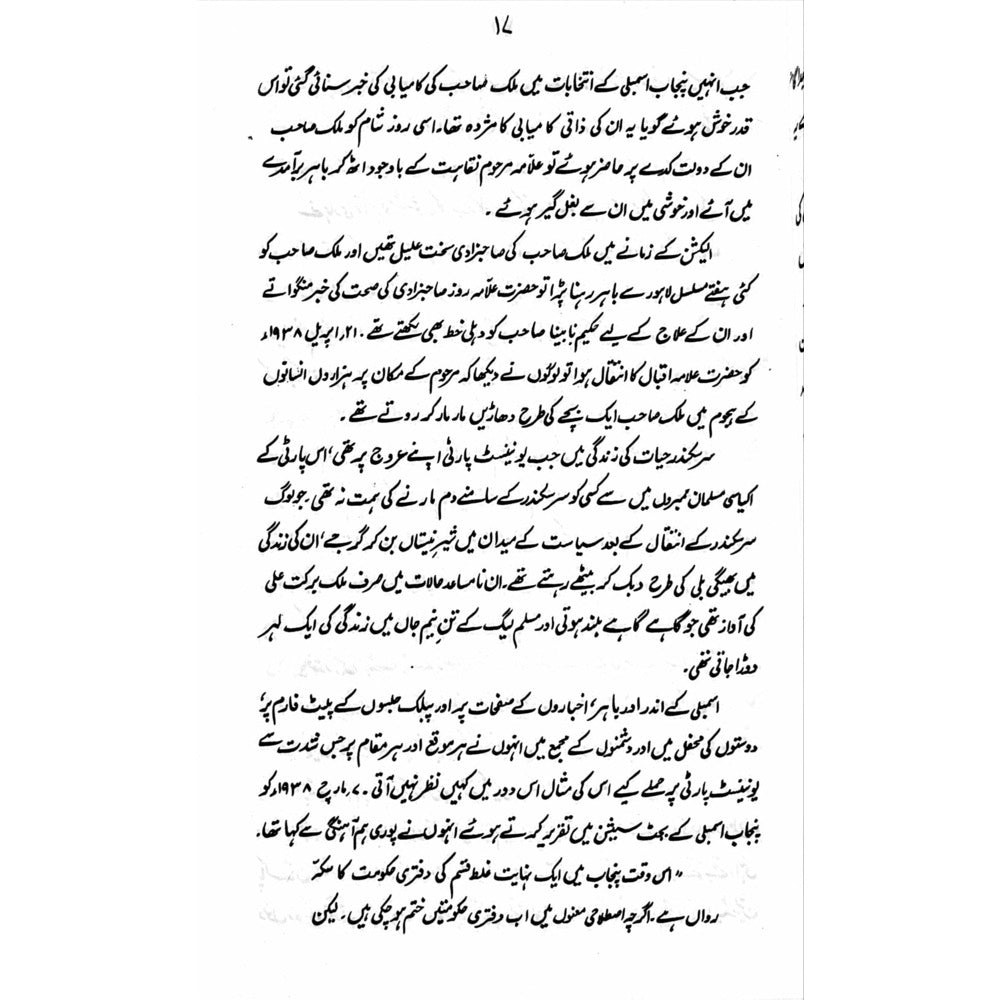 ۱۷
جب انہیں پنجاب اسمبلی کے انتخابات میں ملک صاحب کی کامیابی کی خبر سنائی گئی تو اس
قدر خوش ہوئے گویا یہ ان کی ذاتی کامیابی کا مژدہ تھا۔ اسی روز شام کو ملک صاحب
ان کے دولت کدے پر حاضر ہوئے تو علامہ مرحوم نقاہت کے باوجود اٹھ کر باہر برآمدے
میں آئے اور خوشی میں ان سے بغل گیر ہوئے ۔
الیکشن کے زمانے میں ملک صاحب کی صاحبزادی سخت علیل تھیں اور ملک صاحب کو
کئی ہفتے مسلسل لاہور سے باہر رہنا پڑا تو حضرت علّامہ روز صاحبزادی کی صحت کی خبر منگواتے
اور ان کے علاج کے لیے حکیم نابینا صاحب کو دہلی خط بھی لکھتے تھے ۔ ۲۱؍اپریل ۱۹۳۸ء
کو حضرت علامہ اقبال کا انتقال ہوا تو لوگوں نے دیکھا کہ مرحوم کے مکان پر ہزاروں انسانوں
کے ہجوم میں ملک صاحب ایک بچے کی طرح دھاڑیں مار مار کر روتے تھے ۔
سر سکندر حیات کی زندگی میں جب یونینسٹ پارٹی اپنے عروج پر تھی، اس پارٹی کے
اکیاسی مسلمان ممبروں میں سے کسی کو سر سکندر کے سامنے دم مارنے کی ہمت نہ تھی ۔ جو لوگ
سر سکندر کے انتقال کے بعد سیاست کے میدان میں شیرِ نیستاں بن کر گرجے، ان کی زندگی
میں بھیگی بلی کی طرح دبک کر بیٹھے رہتے تھے ۔ ان نامساعد حالات میں صرف ملک برکت علی
کی آواز تھی جو گاہے گاہے بلند ہوتی اور مسلم لیگ کے تنِ نیم جاں میں زندگی کی ایک لہر
دوڑا جاتی تھی ۔
اسمبلی کے اندر اور باہر، اخباروں کے صفحات پر اور پبلک جلسوں کے پلیٹ فارم پر،
دوستوں کی محفل میں اور دشمنوں کے مجمع میں انہوں نے ہر موقع اور ہر مقام پر جس شدت سے
یونینسٹ پارٹی پر حملے کیے اس کی مثال اس دور میں کہیں نظر نہیں آتی ۔ ۷؍مارچ ۱۹۳۸ء کو
پنجاب اسمبلی کے بجٹ سیشن میں تقریر کرتے ہوئے انہوں نے پوری ہم آہنگی سے کہا تھا۔
" اس وقت پنجاب میں ایک نہایت غلط قسم کی دفتری حکومت کا سکّہ
رواں ہے ۔ اگرچہ اصطلاحی معنوں میں اب دفتری حکومتیں ختم ہو چکی ہیں ۔ لیکن